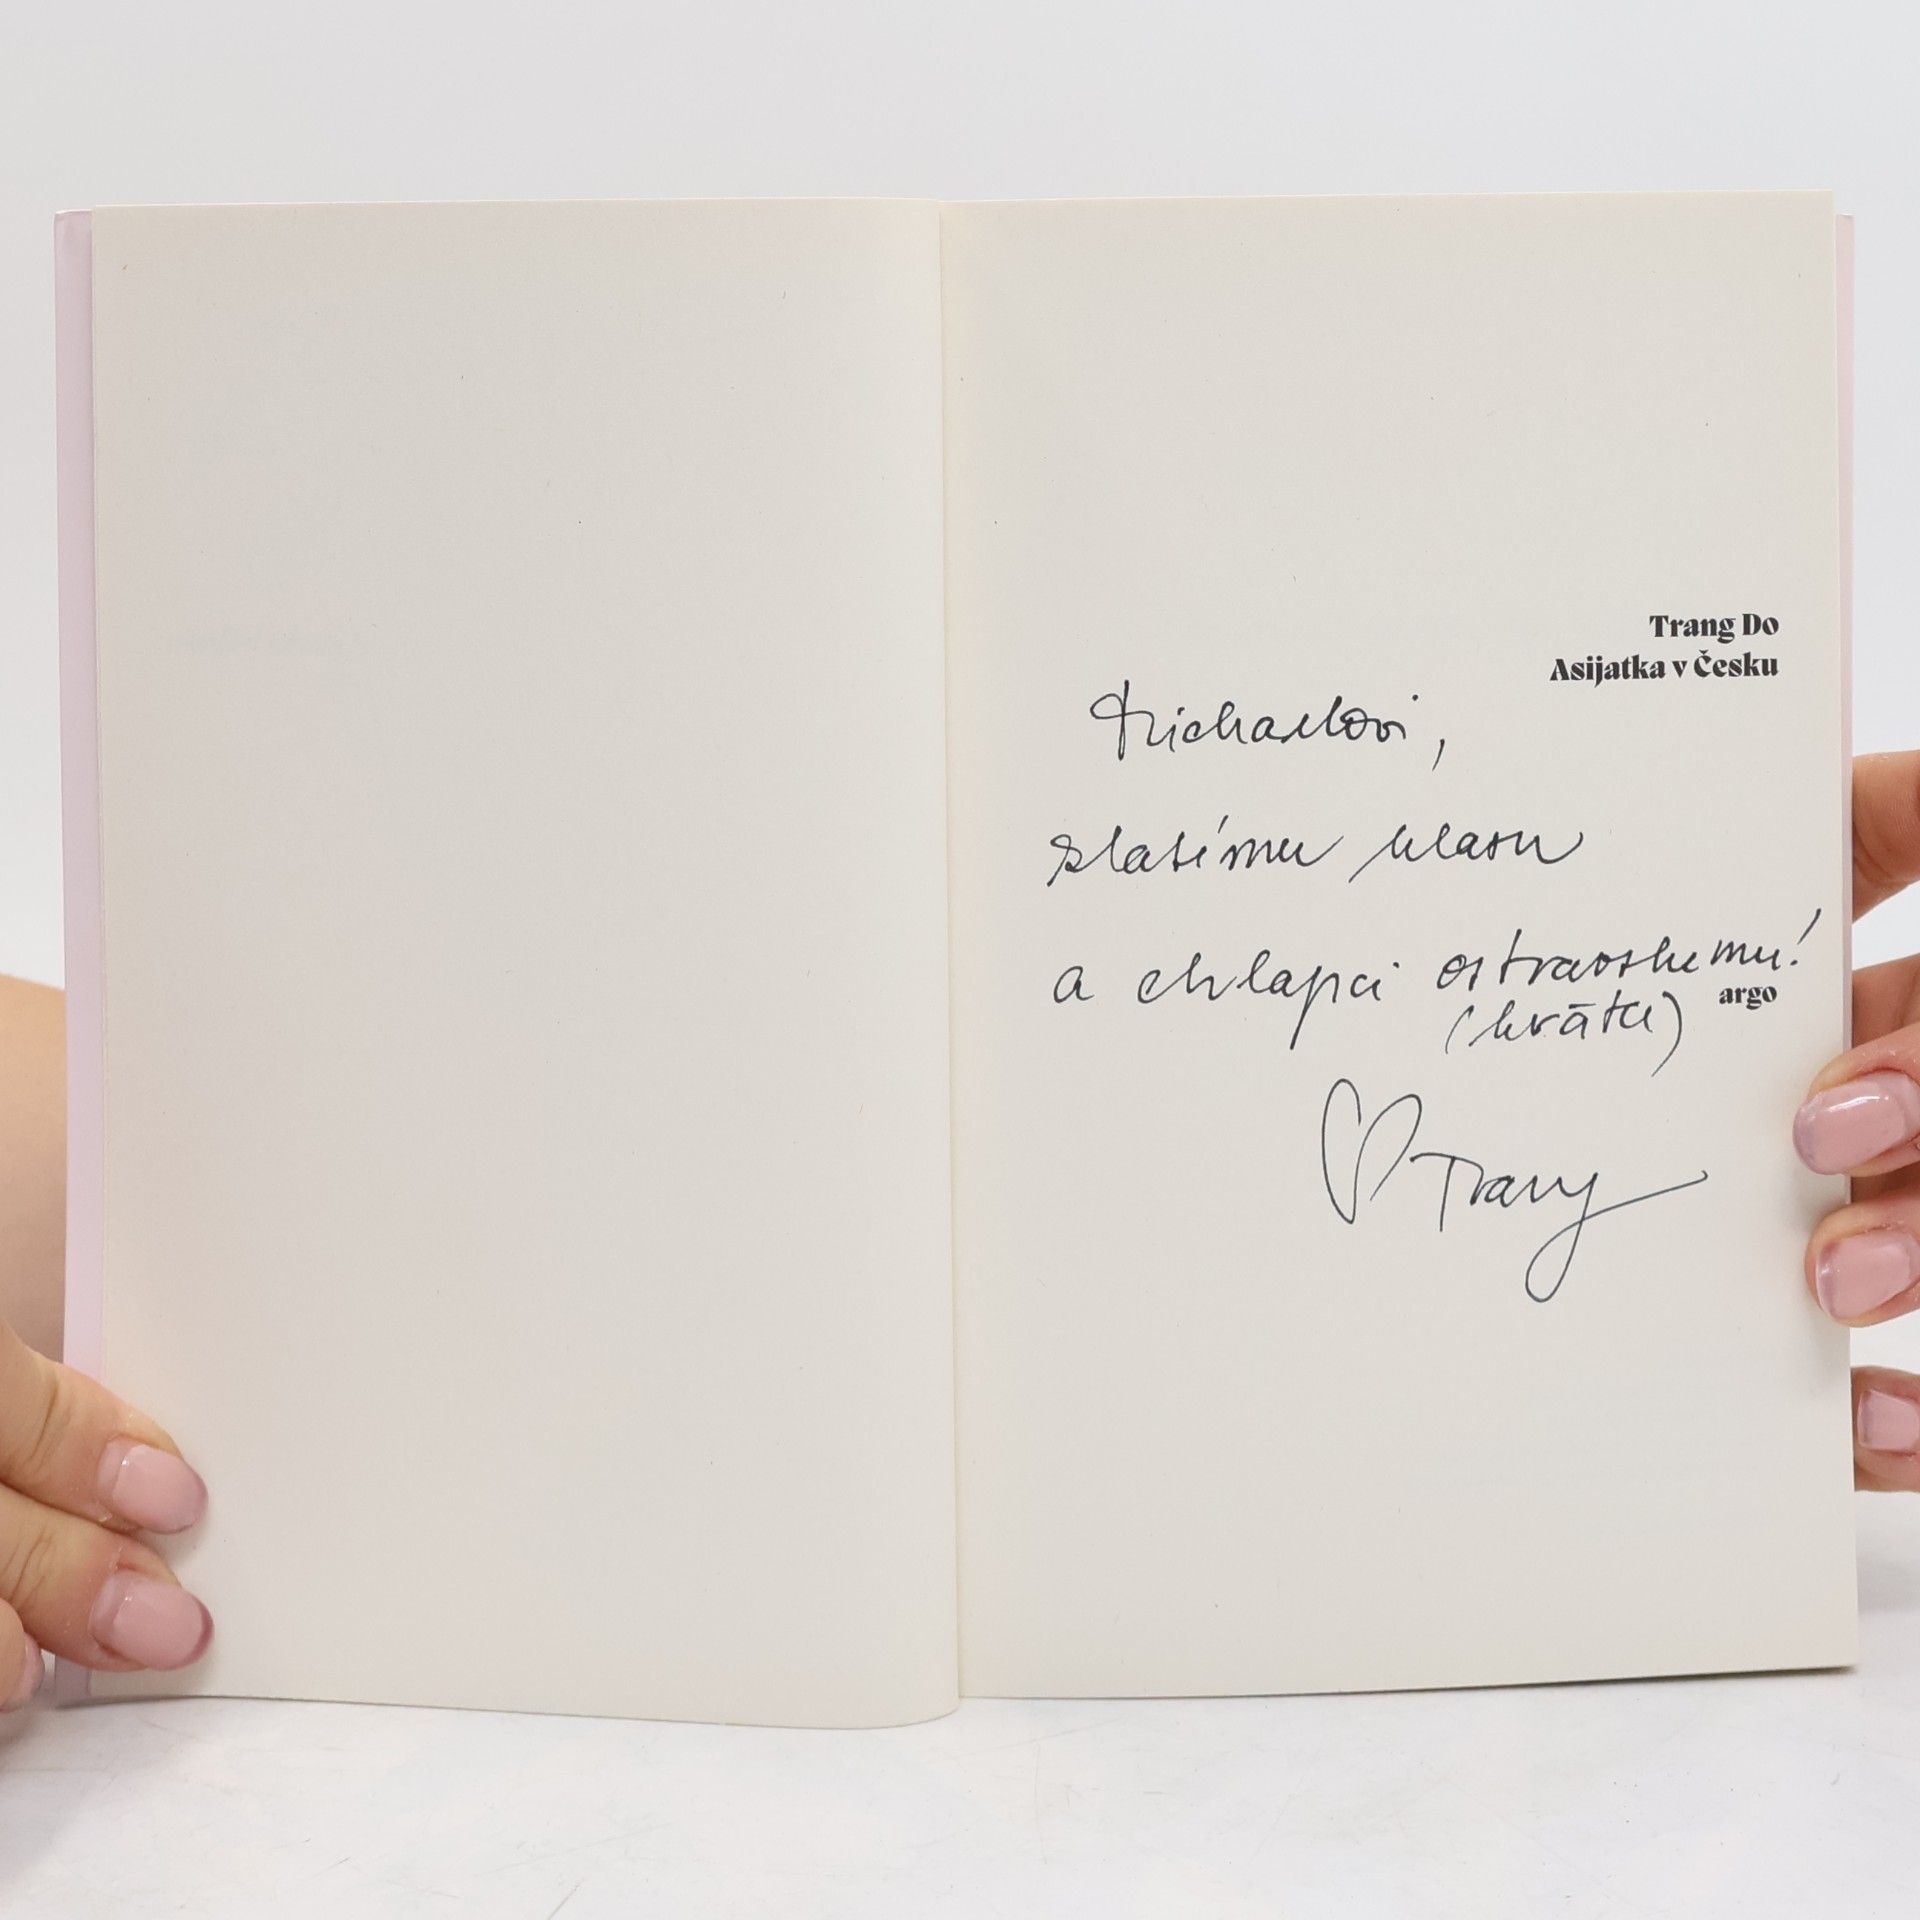 Trang Do
Asijatka v Česku
Michaelovi,
zlatému hlasu
a chlapci ostravskemu!
argo
(krátké)
Trang